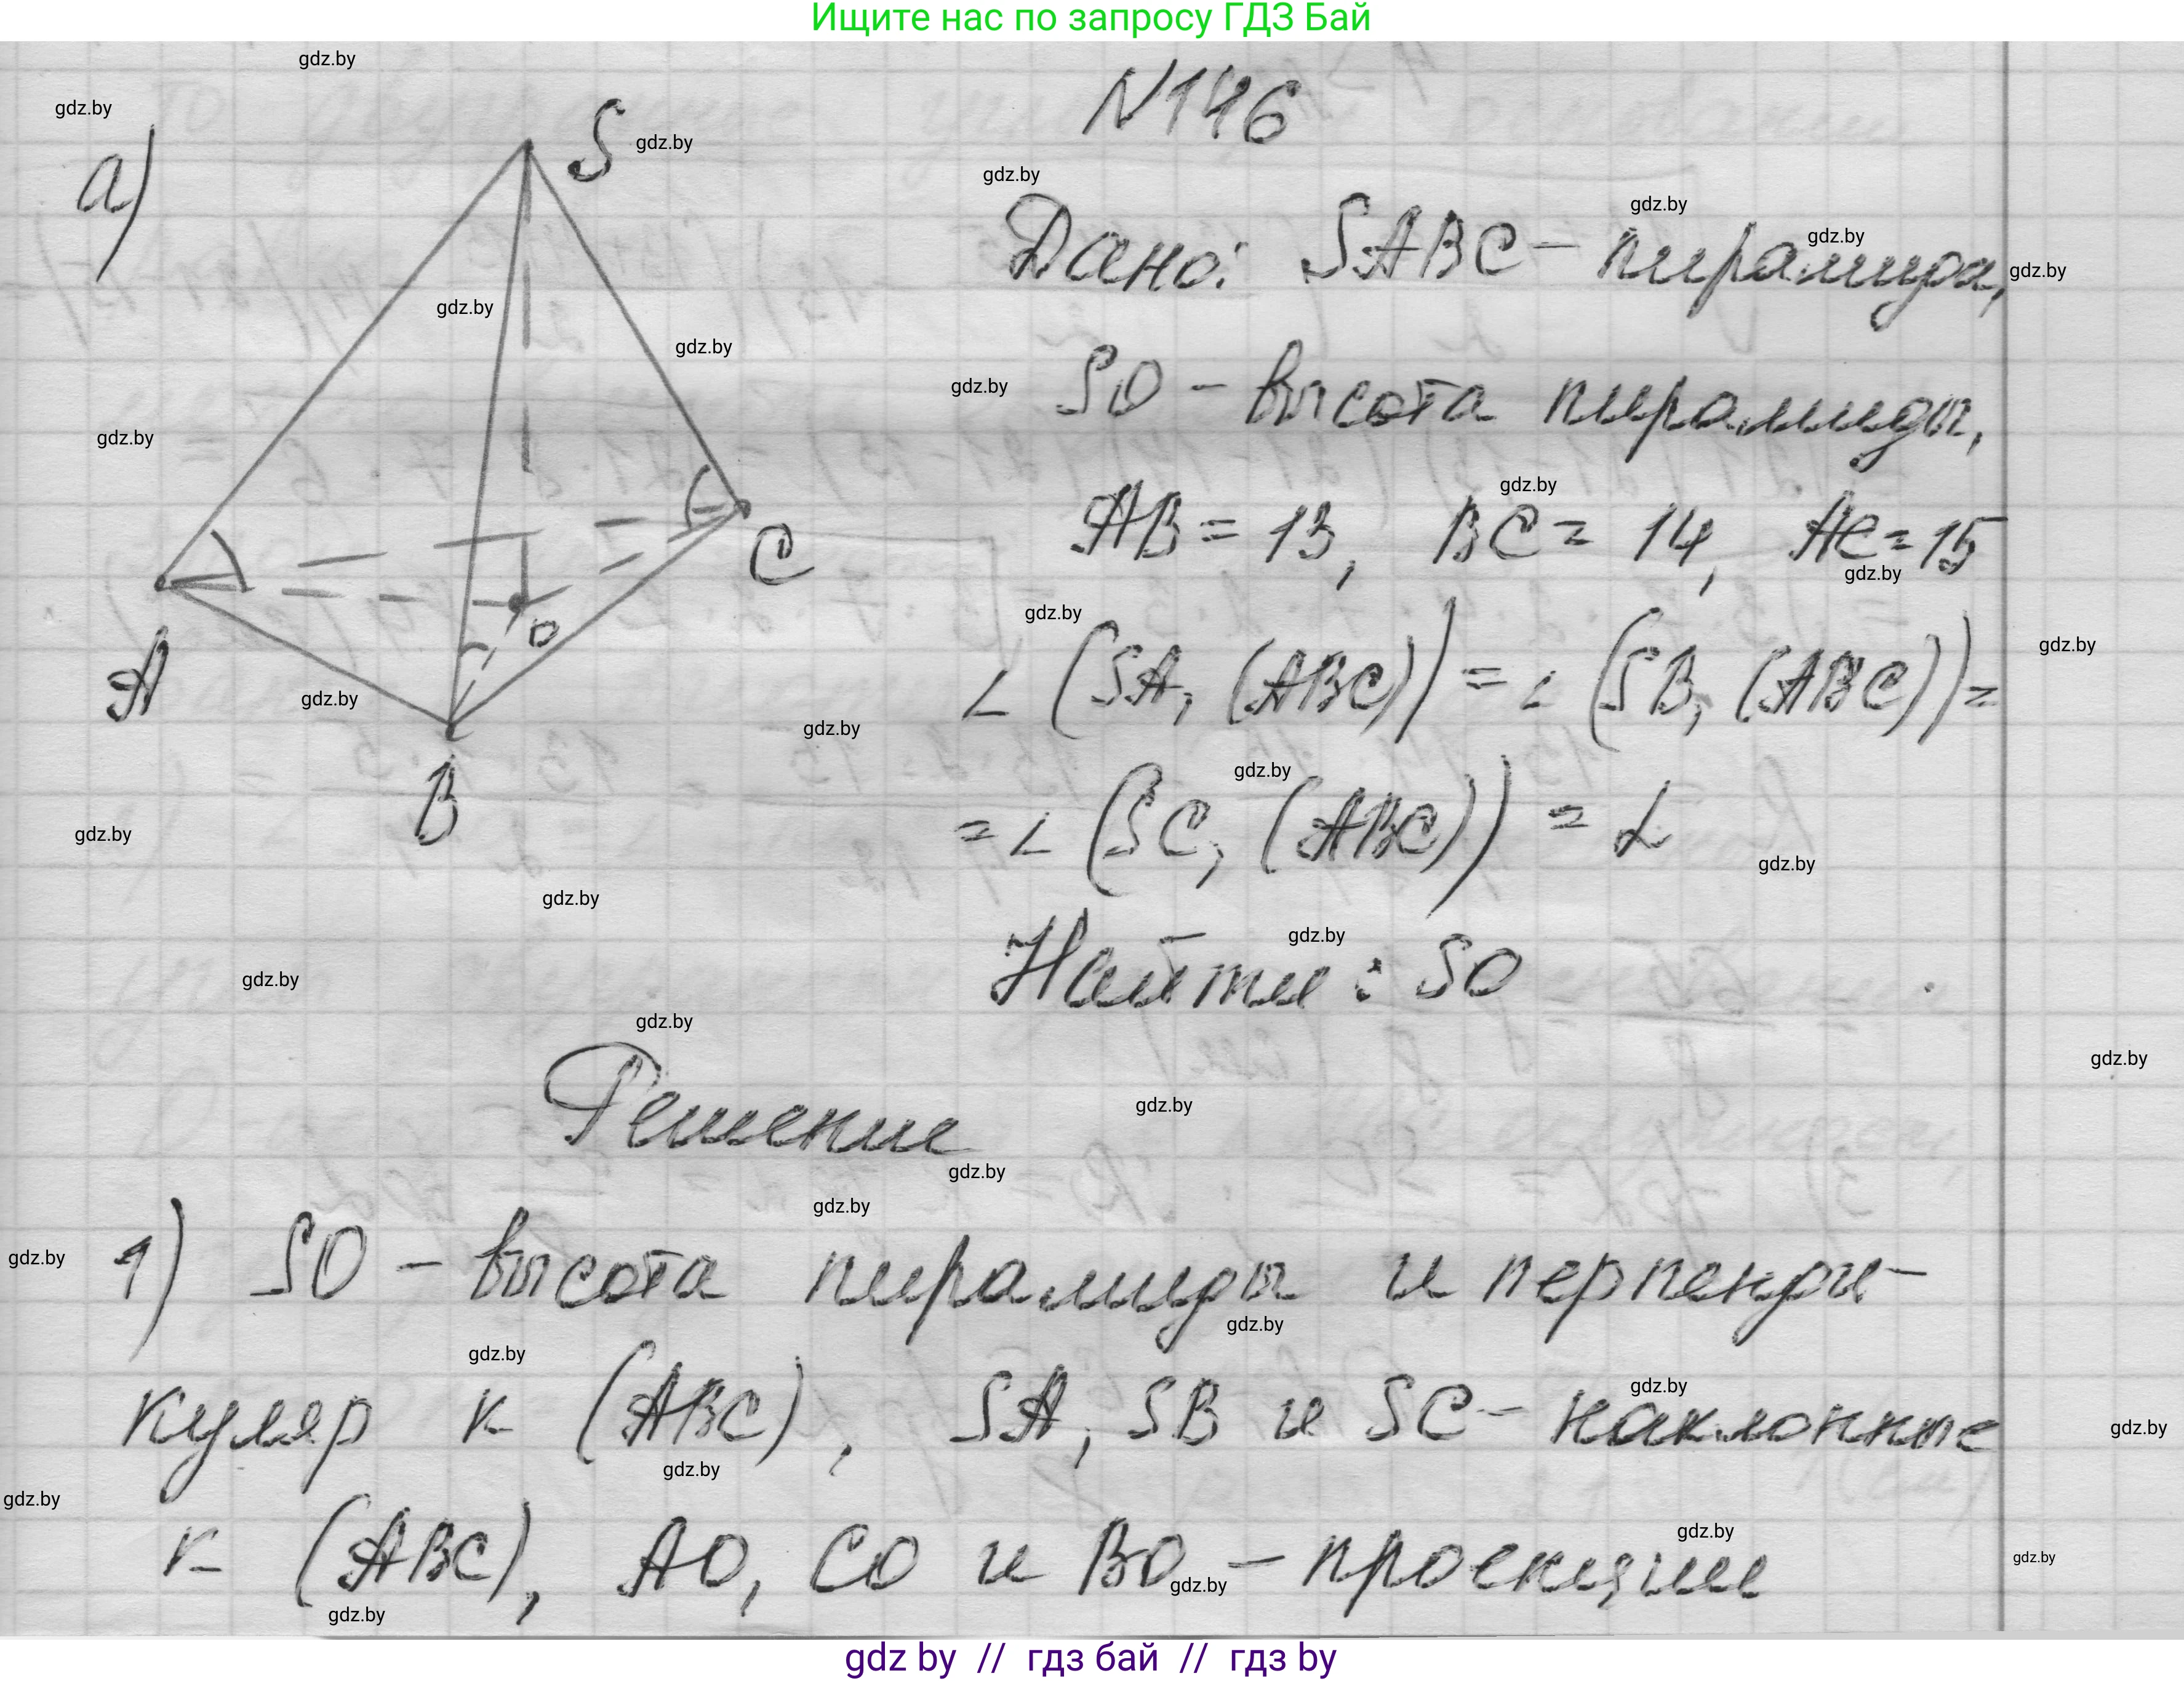 Ищите нас по запросу ГДЗ Бай
N146
а)
S
A
B
C
O
Дано: SABC – пирамида,
SO – высота пирамиды,
AB = 13, BC = 14, AC = 15
∠(SA, (ABC)) = ∠(SB, (ABC)) =
= ∠(SC, (ABC)) = α
Найти: SO
Решение
1) SO – высота пирамиды и перпенди-
куляр к (ABC), SA, SB и SC – наклонные
к (ABC), AO, CO и BO – проекции
gdz by // гдз бай // гдз by
gdz.by